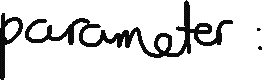 parameter :